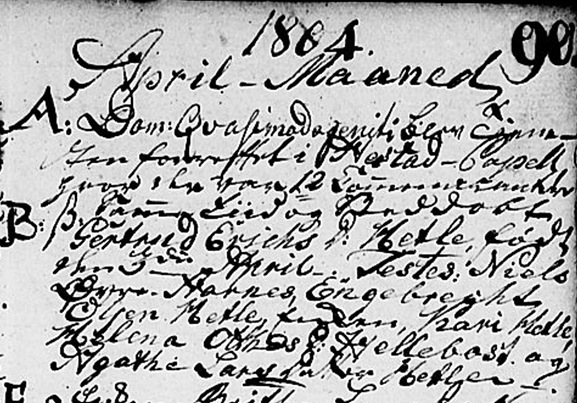 1804. 90.
April-Maaned
A: Dom: Qvasimodogeniti blev Tienne-
sten forrettet i Nestad-Capell
hvor der var 12 Communicantere
B: samme Tiid og Sted døbt
Gertrud Erichs d: Hetle, født
den 3die April. Testes: Niels
Øvre-Harnes, Engebregth
Olsen Hetle, Kari Hetle
Helena Othes d: Hellebost. og
Agathe Larsdatter Hetle